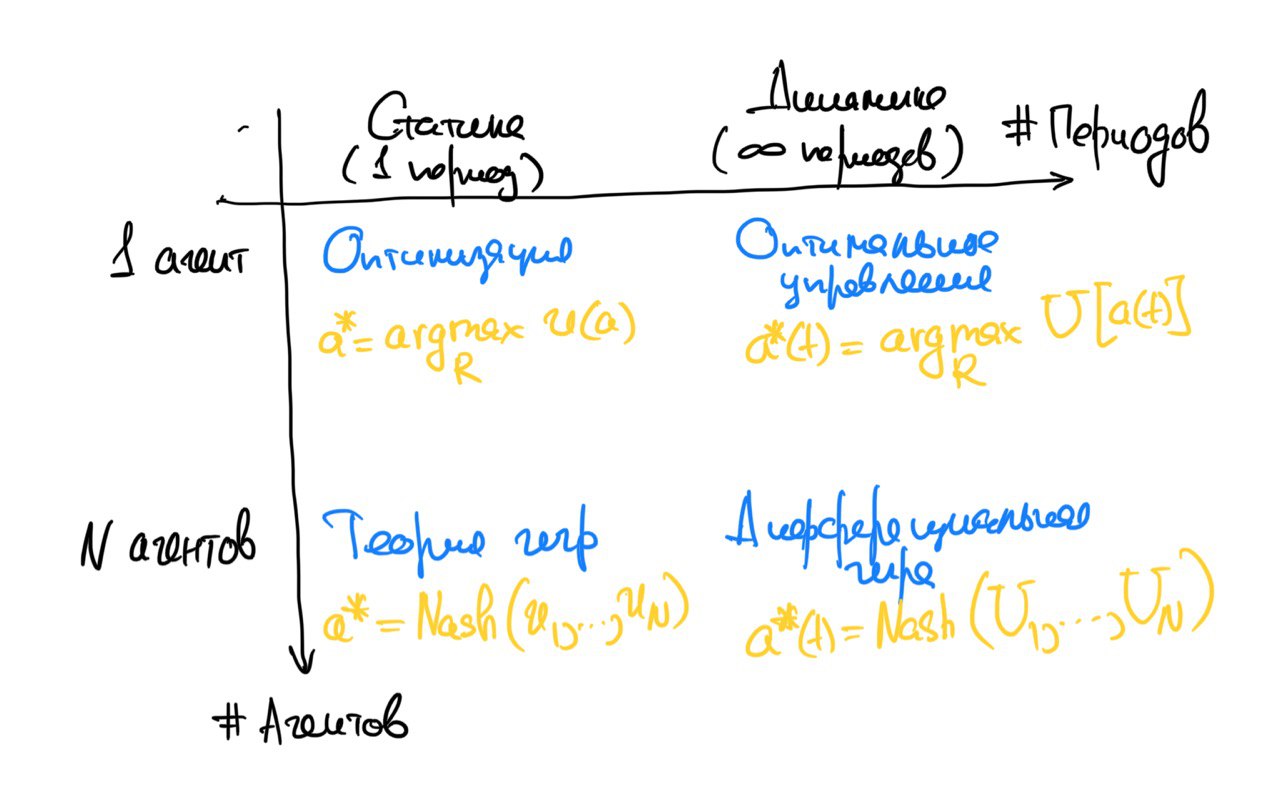 Статика
(1 период)
Динамика
(∞ периодов)
# Периодов
1 агент
Оптимизация
a* = argmax u(a)
R
Оптимальное
управление
a*(t) = argmax U[a(t)]
R
N агентов
Теория игр
a* = Nash(u₁,...,u_N)
Дифференциальная
игра
a*(t) = Nash(U₁,...,U_N)
# Агентов